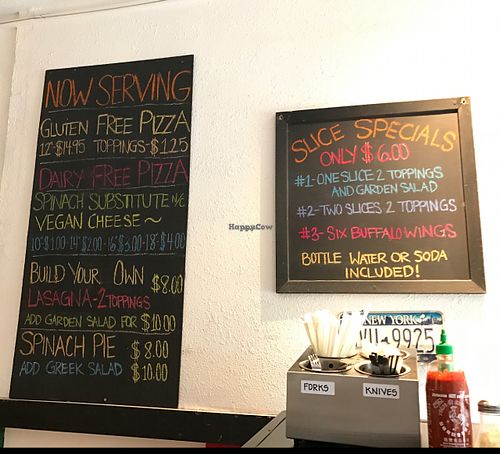 NOW SERVING
GLUTEN FREE PIZZA
12"-$14.95 TOPPINGS-$1.25
DAIRY FREE PIZZA
SPINACH SUBSTITUTE N/C
VEGAN CHEESE~
10"-$1.00-14"-$2.00-16"-$3.00-18"-$4.00
BUILD YOUR OWN $8.00
LASAGNA-2 TOPPINGS
ADD GARDEN SALAD FOR $10.00
SPINACH PIE $8.00
ADD GREEK SALAD $10.00
SLICE SPECIALS
ONLY $6.00
#1-ONE SLICE 2 TOPPINGS
AND GARDEN SALAD
#2-TWO SLICES 2 TOPPINGS
#3-SIX BUFFALO WINGS
BOTTLE WATER OR SODA
INCLUDED!
HappyCow
NEW YORK
9925
FORKS
KNIVES